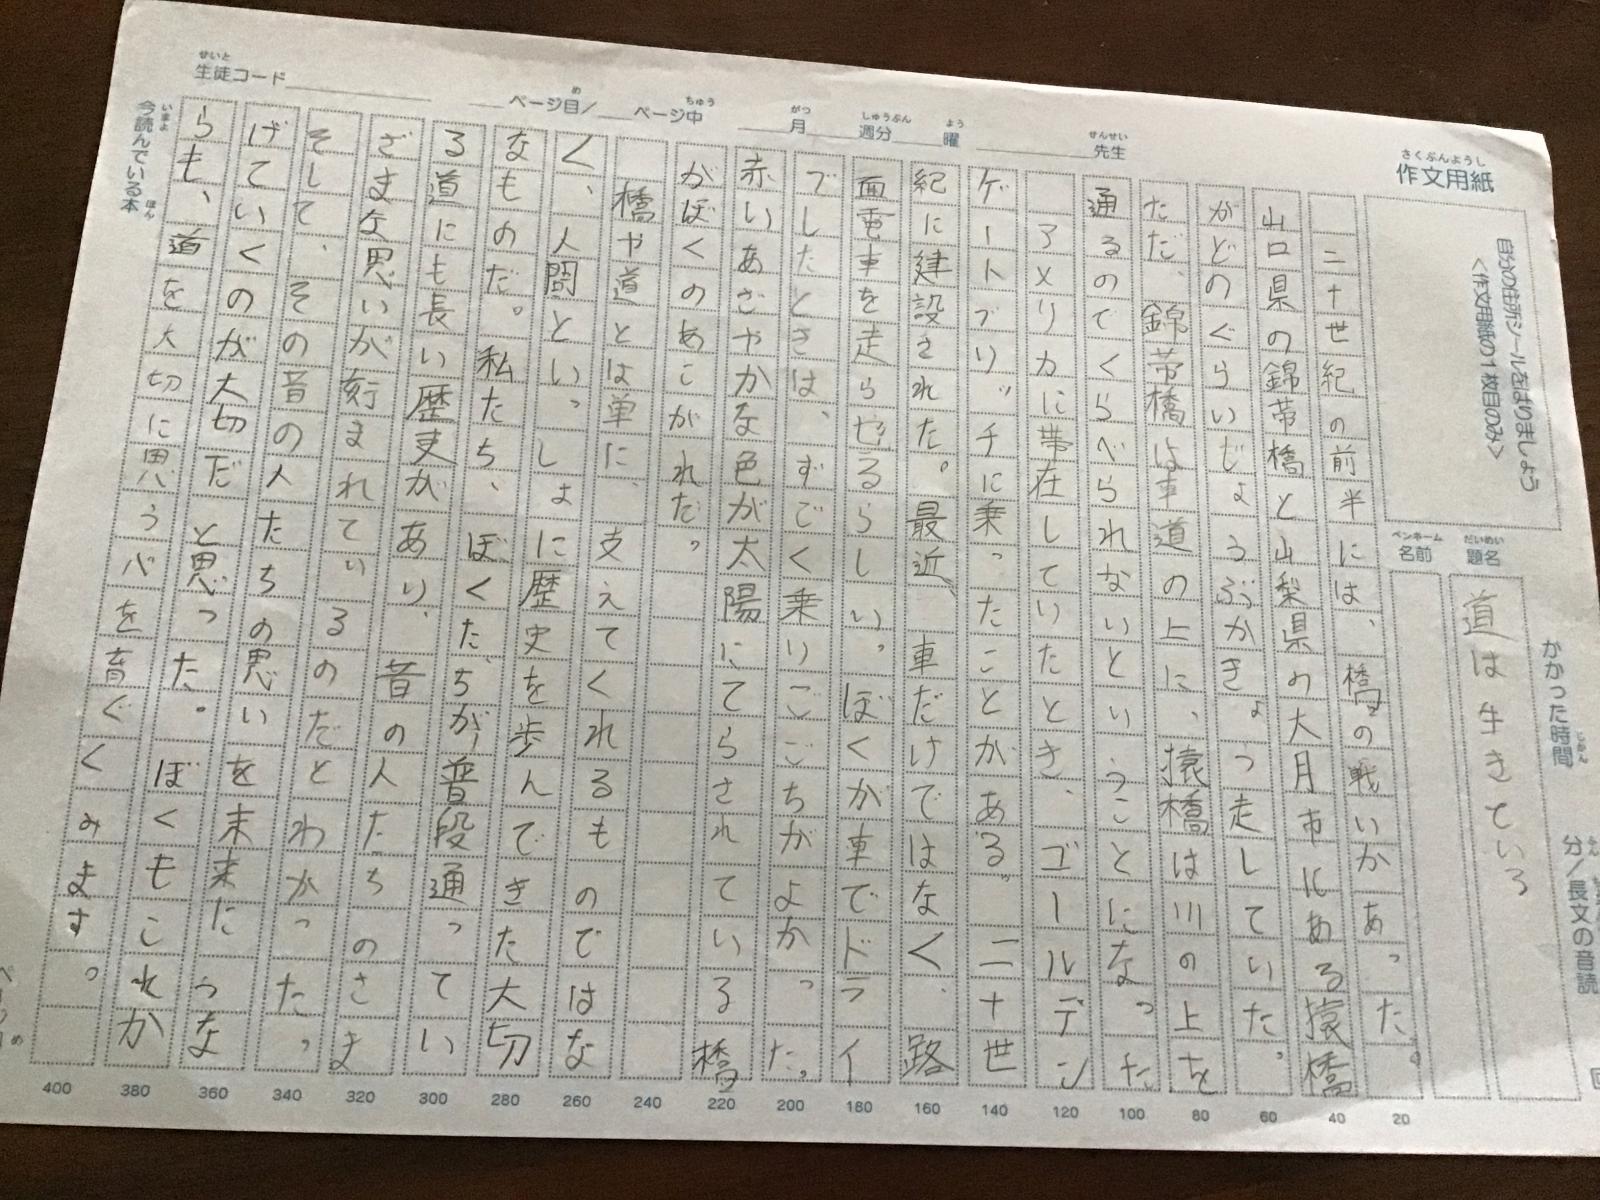 作文用紙
さくぶんようし
自分の住所シールをはりましょう
<作文用紙の1枚目のみ>
生徒コード
せいと
ページ目/ ページ中
め
ちゅう
月 週分 曜
がつ
しゅうぶん
よう
先生
せんせい
かかった時間
じかん
分/長文の音読
題名
だいめい
道は生きている
名前
ペンネーム
二十世紀の前半には、橋の戦いがあった。
山口県の錦帯橋と山梨県の大月市にある猿橋
がどのぐらいじょうぶかきょう走していた。
ただ、錦帯橋は車道の上に、猿橋は川の上を
通るのでくらべられないということになった
アメリカに帯在していたとき、ゴールデン
ゲートブリッチに乗ったことがある。二十世
紀に建設された。最近、車だけではなく、路
面電車を走らせるらしい。ぼくが車でドライ
ブしたときは、すごく乗りごごちがよかった。
赤いあざやかな色が太陽にてらされている橋
がぼくのあこがれだ。
橋や道とは単に、支えてくれるものではな
く、人間といっしょに歴史を歩んできた大切
なものだ。私たち、ぼくたちが普段通ってい
る道にも長い歴史があり、昔の人たちのさま
ざまな思いが刻まれているのだとわかった。
そして、その昔の人たちの思いを未来につな
げていくのが大切だと思った。ぼくもこれか
らも、道を大切に思う心を育ぐくみます。
今読んでいる本
いまよ
ほん
20
40
60
80
100
120
140
160
180
200
220
240
260
280
300
320
340
360
380
400